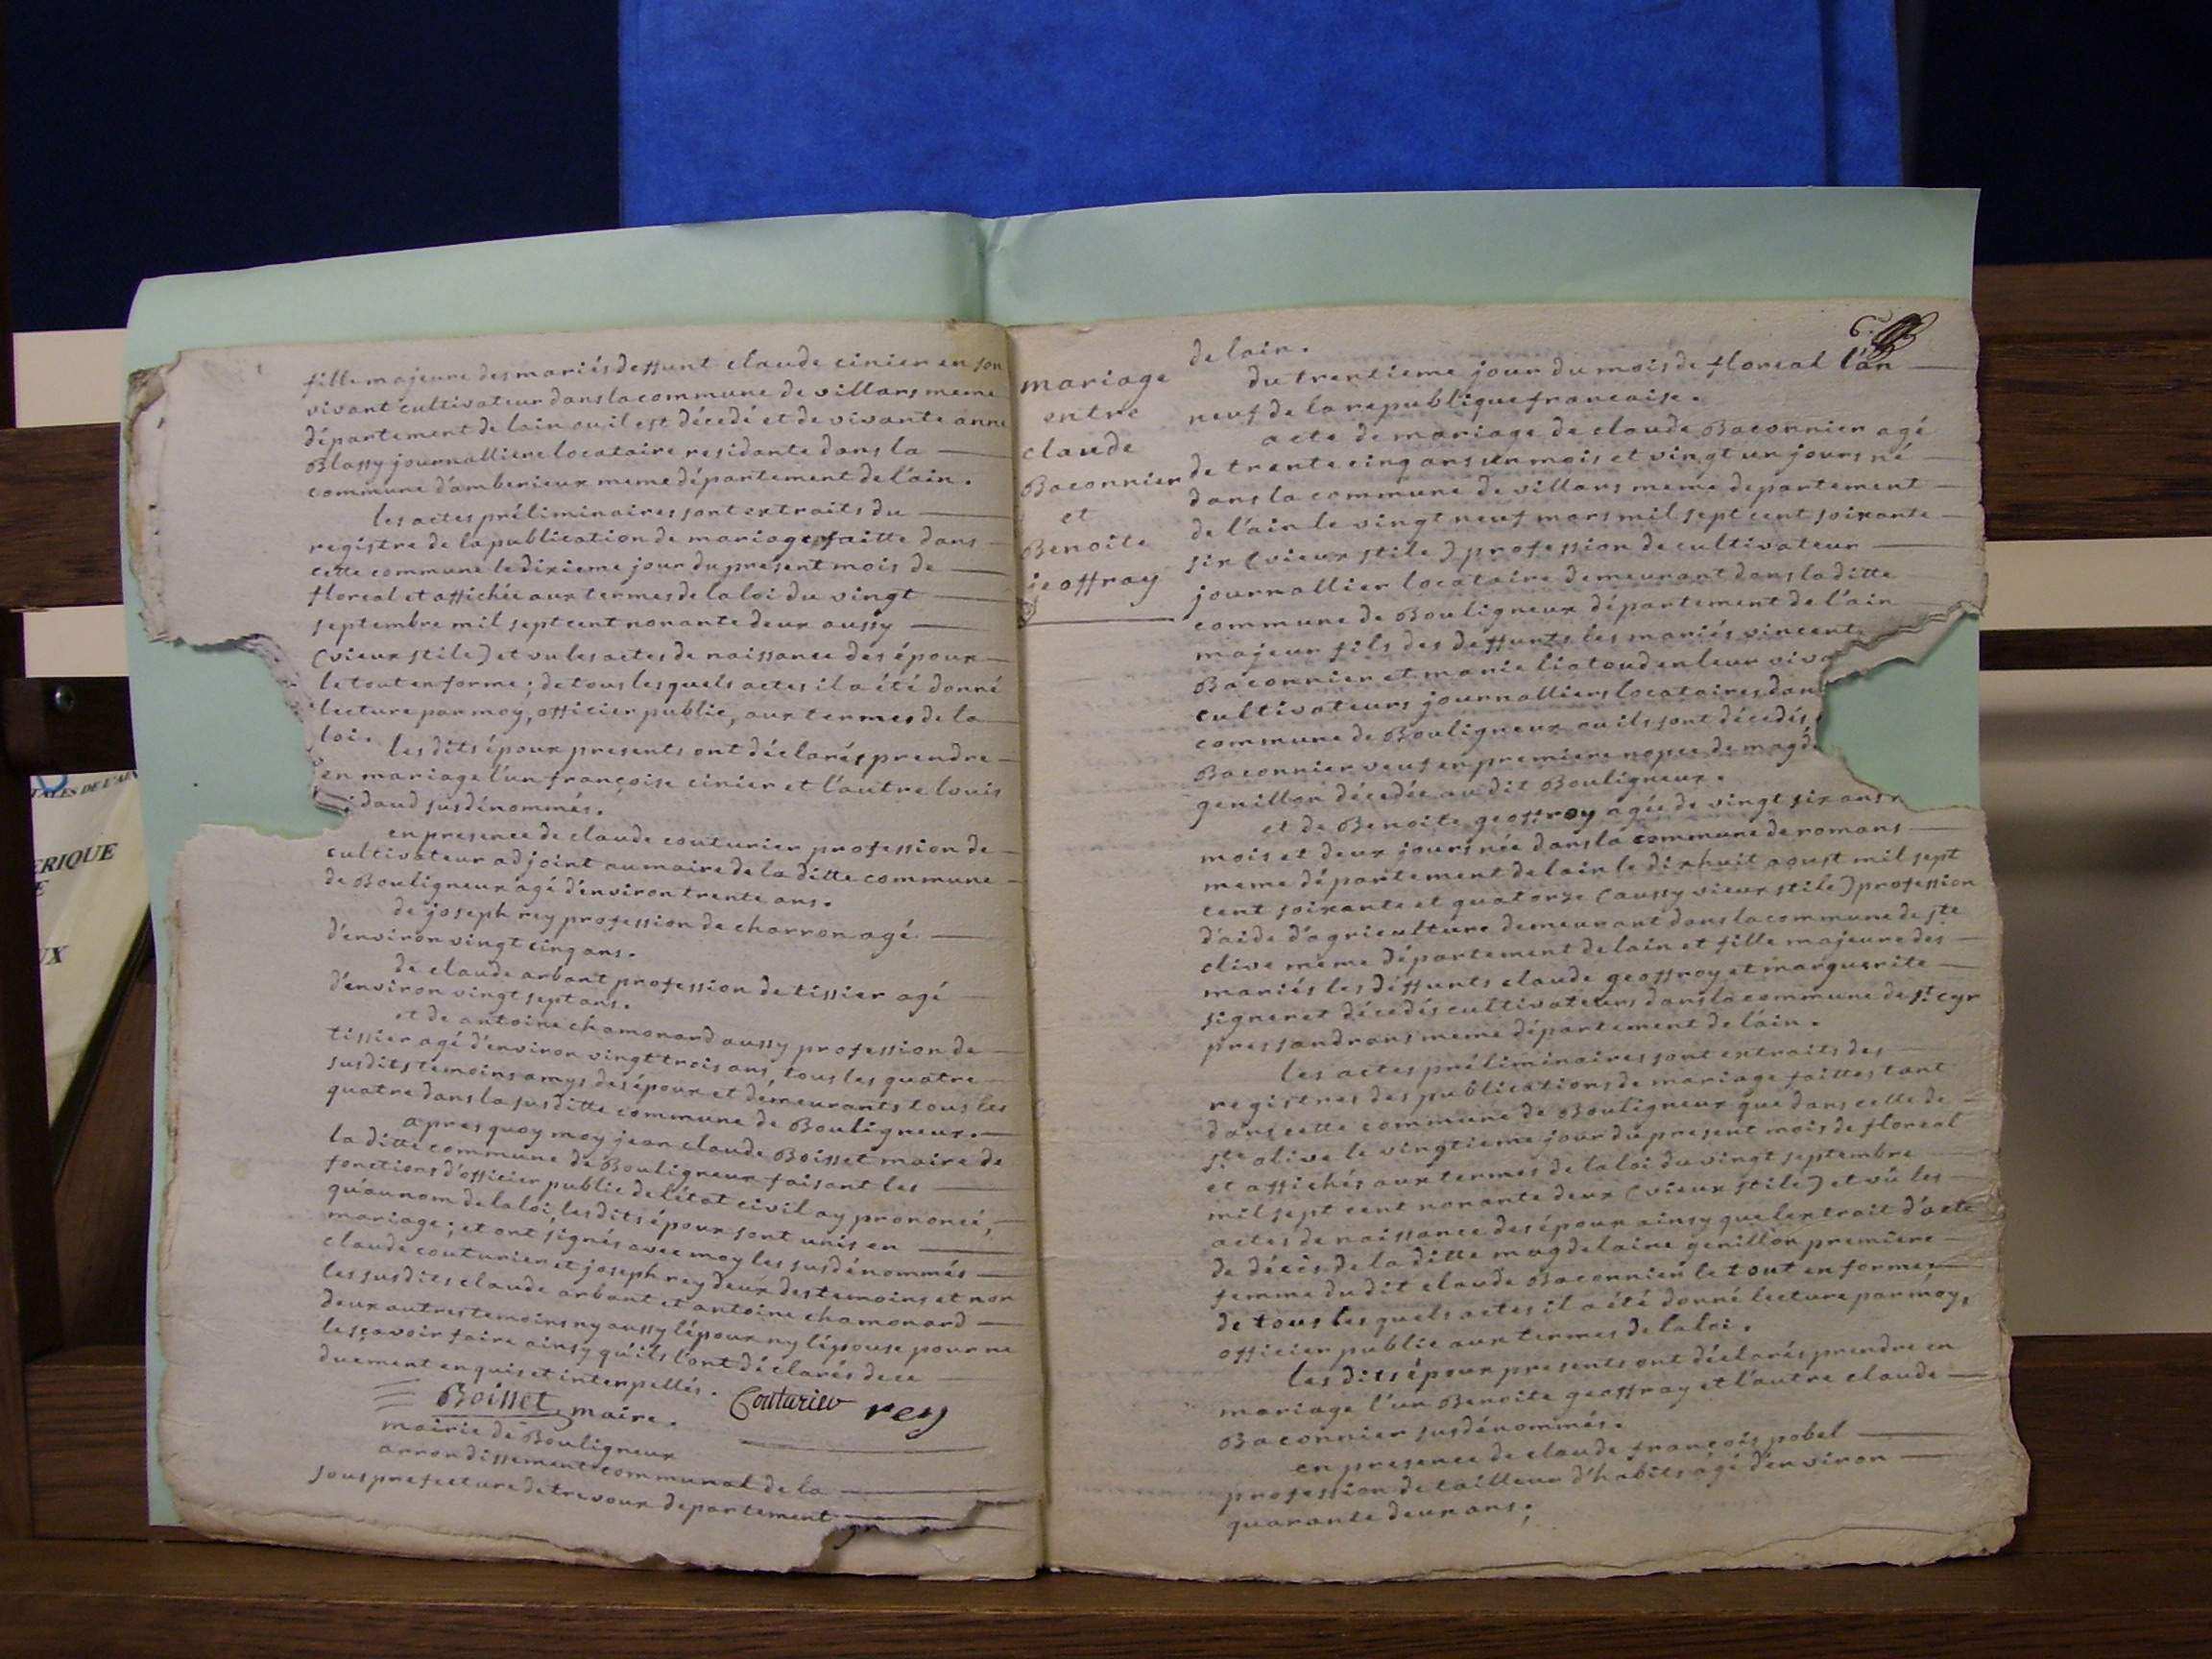 fille majeure des mariés deffunt claude cinier en son
vivant cultivateur dans la commune de villars meme
département de lain ou il est décedé et de vivante anne
Blassy journalliere locataire residante dans la
commune d'amberieux meme département de l'ain.
les actes préliminaires sont extraits du
registre de la publication de mariage faitte dans
cette commune le dixieme jour du present mois de
floreal et affichée aux termes de la loi du vingt
septembre mil sept cent nonante deux aussy
(vieux stile) et vu les actes de naissance des époux
le tout en forme; de tous les quels actes il a été donné
lecture par moy, officier public, aux termes de la
loi.
les dits époux presents ont déclarés prendre
en mariage l'un françoise cinier et l'autre louis
daud susdénommés.
en presence de claude couturier profession de
cultivateur adjoint au maire de la ditte commune
de Bouligneux agé d'environ trente ans.
de joseph rey profession de charron agé
d'environ vingt cinq ans.
de claude arbant profession de tissier agé
d'environ vingt sept ans.
et de antoine chamonard aussy profession de
tissier agé d'environ vingt trois ans, tous les quatre
susdits temoins amys des époux et demeurants tous les
quatre dans la susditte commune de Bouligneux.
apres quoy moy jean claude Boisset maire de
la ditte commune de Bouligneux faisant les
fonctions d'officier public de l'état civil ay prononcé,
qu'au nom de la loi, les dits époux sont unis en
mariage; et ont signés avec moy les susdénommés
claude couturier et joseph rey deux des temoins et non
les susdits claude arbant et antoine chamonard
deux autres temoins ny aussy l'époux ny l'épouse pour ne
le sçavoir faire ainsy qu'ils l'ont déclarés de ce
duement enquis et interpellés.
Boisset maire. Couturier rey
mairie de Bouligneux
arrondissement communal de la
sous prefecture de trevoux departement
6.
de lain.
mariage
entre
claude
Baconnier
et
Benoite
geoffray
du trentieme jour du mois de floreal l'an
neuf de la republique francaise.
acte de mariage de claude Baconnier agé
de trente cinq ans un mois et vingt un jours né
dans la commune de villars meme departement
de l'ain le vingt neuf mars mil sept cent soixante
six (vieux stile) profession de cultivateur
journallier locataire demeurant dans la ditte
commune de Bouligneux département de l'ain
majeur fils des deffunts les mariés vincent
Baconnier et marie liatoud en leur viva
cultivateurs journalliers locataires dan
commune de Bouligneux ou ils sont décedés
Baconnier veuf en premiere nopce de magd
genillon décedée au dit Bouligneux.
et de Benoite geoffroy agée de vingt six ans
mois et deux jours née dans la commune de romans
meme département de lain le dixhuit aoust mil sept
cent soixante et quatorze (aussy vieux stile) profession
d'aide d'agriculture demeurant dans la commune de ste
olive meme département de lain et fille majeure des
mariés les deffunts claude geoffroy et marguerite
signeret décedés cultivateurs dans la commune de st. cyr
pres sandrans meme département de lain.
les actes préliminaires sont extraits des
registres des publications de mariage faittes tant
dans cette commune de Bouligneux que dans cette de
ste. olive le vingtieme jour du present mois de floreal
et affichés aux termes de la loi du vingt septembre
mil sept cent nonante deux (vieux stile) et vu les
actes de naissance des époux ainsy que lextrait d'acte
de décis de la ditte magdelaine genillon premiere
femme du dit claude Baconnier le tout en forme;
de tous les quels actes il a été donné lecture par moy,
officier public aux termes de la loi.
les dits époux presents ont déclarés prendre en
mariage l'un Benoite geoffray et l'autre claude
Baconnier susdénommés.
en presence de claude françois pobel
profession de tailleur d'habits agé d'environ
quarante deux ans;